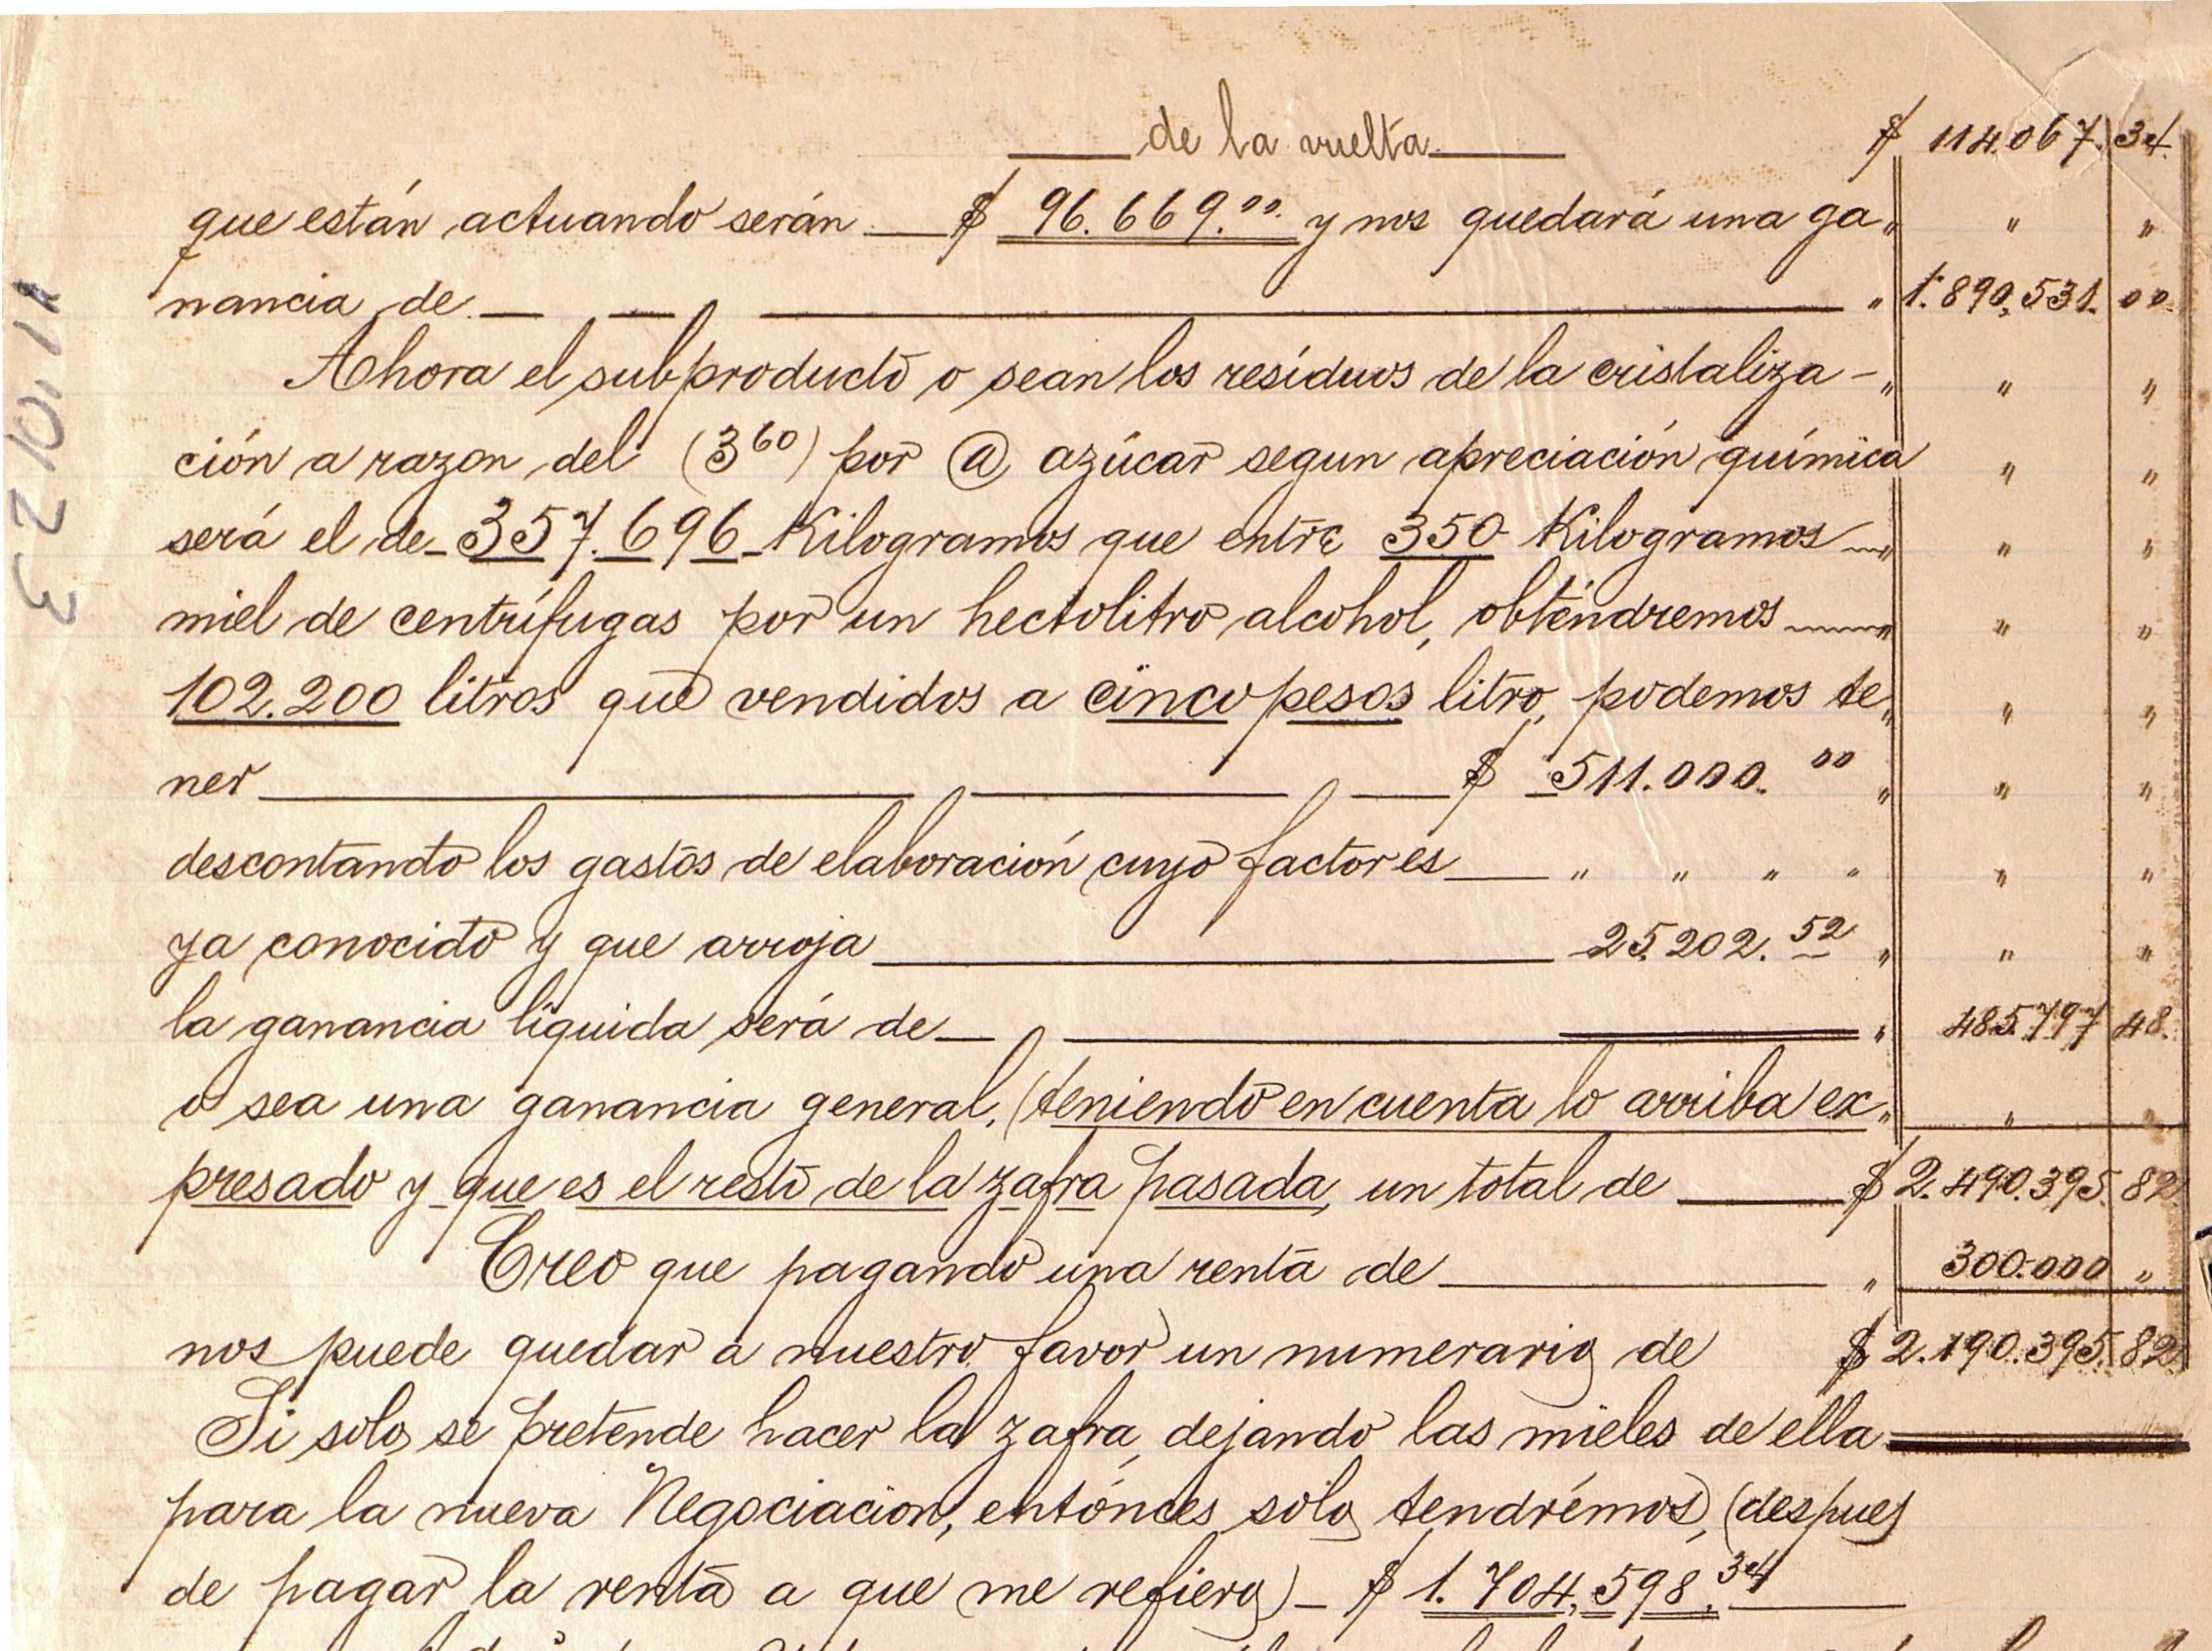 de la vuelta $ 114.067. 34.
que están actuando serán $ 96.669.00. y nos quedará una ga „ „ „
nancia de „ 1.890,531. 00.
Ahora el subproducto o sean los resíduos de la cristaliza - „ „ „
ción a razon del (3 60) por @ azúcar segun apreciación química „ „
será el de 357.696 Kilogramos que entre 350 Kilogramos „ „ „
miel de centrífugas por un hectolitro alcohol, obtendremos „ „ „
102.200 litros que vendidos a cinco pesos litro, podemos te „ „ „
ner $ 511.000. 00 „ „ „
descontando los gastos de elaboración cuyo factor es „ „ „ „ „ „
ya conocido y que arroja 25.202. 52 „ „ „
la ganancia líquida será de „ 485.797 48.
o sea una ganancia general, (teniendo en cuenta lo arriba ex „ „ „
presado y que es el resto de la zafra pasada, un total de $ 2.490.395. 82
Creo que pagando una renta de „ 300.000 „
nos puede quedar a nuestro favor un numerario de $ 2.190.395. 82.
Si solo se pretende hacer la zafra, dejando las mieles de ella
para la nueva Negociacion, entónces sólo tendrémos, (despues
de pagar la renta a que me refiero) - $ 1.704,598.34
11.10.23